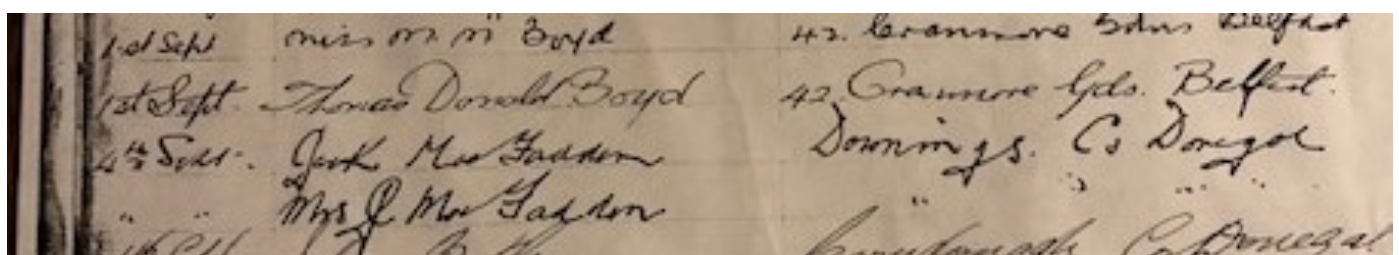 1st Sept Miss M. M. Boyd 42. Cranmore Gdns Belfast
1st Sept. Thomas Donald Boyd 42. Cranmore Gds. Belfast.
4th Sept. Jack MacFadden Downings. Co Donegal
" " Mrs J MacFadden " " "
Co. Donegal